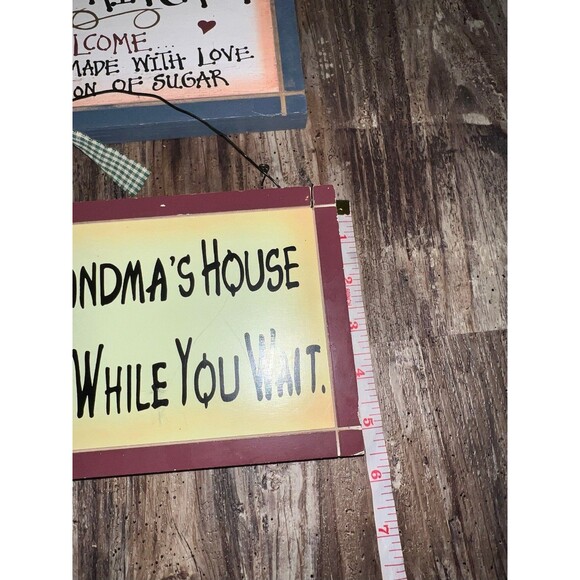 LCOME...
MADE WITH LOVE
ON OF SUGAR
NDMA'S HOUSE
WHILE YOU WAIT.
1
2
3
4
5
6
7